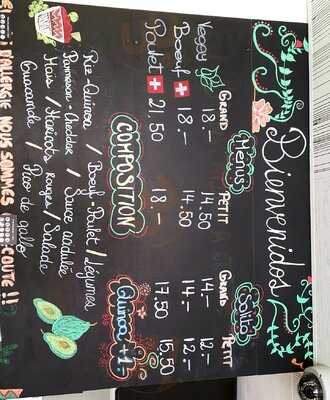 Bienvenidos
Menus Solito
GRAND PETIT GRAND PETIT
Veggy 18.- 14.50 14.- 12.-
Boeuf 18.- 14.50 14.- 12.-
Poulet 21.50 18.- 17.50 15.50
COMPOSITION Quinoa +1.-
Riz-Quinoa / Boeuf-Poulet / Légumes
Parmesan-Cheddar / Sauce acidulée
Maïs / Haricots Rouges / Salade
Guacamole / Pico de gallo
! ALLERGIE NOUS SOMMES COUTE !!